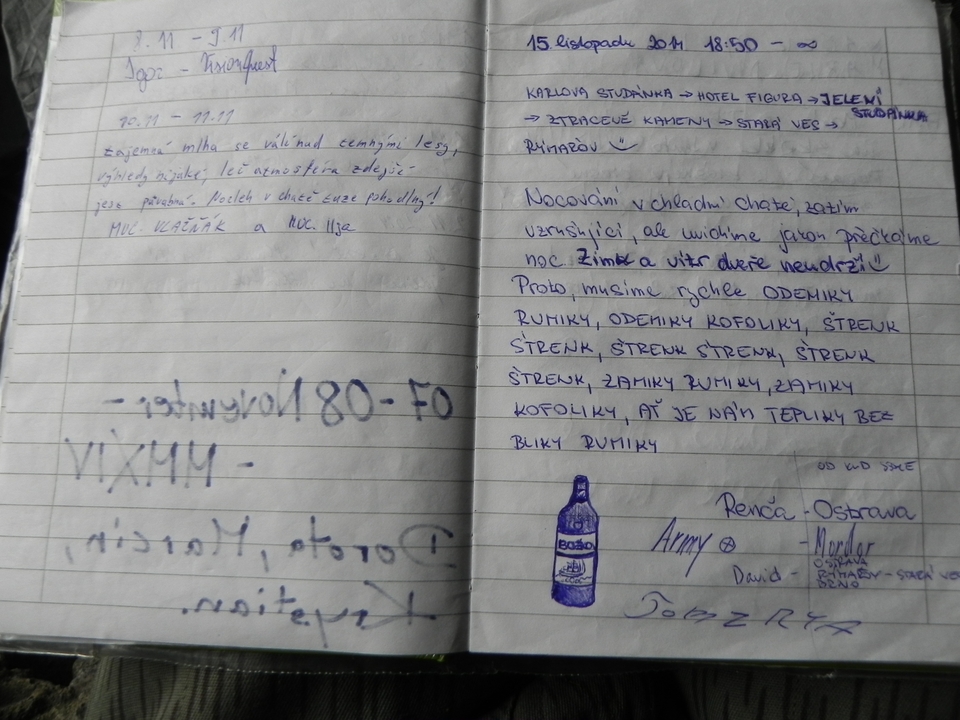 8.11 - 9.11
Igor - VisionQuest
10.11 - 11.11
tajemná mlha se válí nad temnými lesy,
výhledy nijaké, leč atmosféra zdejší
jest půvabná. Nocleh v chatě zuze pohodlný!
MUC. VLAŽŇÁK a MUC. Ilja
07-08 November -
- MMXIV
Dorota, Marcin,
Krystian.
15. listopadu 2014 18:50 - ∞
KARLOVA STUDÁNKA → HOTEL FIGURA → JELENÍ
STUDÁNKA
→ ZTRACENÉ KAMENY → STARÁ VES →
RÝMAŘOV
Nocování v chladní chatě, zatím
vzrušující, ale uvidíme jakou přečkáme
noc. Zimu a vítr dveře neudrží
Proto, musíme rychle ODEMIKY
RUMIKY, ODEMIKY KOFOLIKY, ŠTRENK
ŠTRENK, ŠTRENK ŠTRENK, ŠTRENK
ŠTRENK, ZAMIKY RUMIKY, ZAMIKY
KOFOLIKY, AŤ JE NÁM TEPLIKY BEZ
BLIKY RUMIKY
OD KUD JSME
Renča - Ostrava
Army - Mordor
OSTRAVA
David - RÝMAŘOV - STARÁ VES
BRNO
BOŽKO